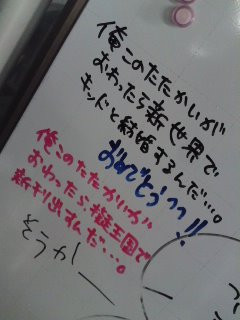 俺このたたかいが
おわったら新世界で
キッドと結婚するんだ…。
おめでとうっっ!!
俺このたたかいが
おわったら擬王国で
新刊出すんだ…。
そうかー